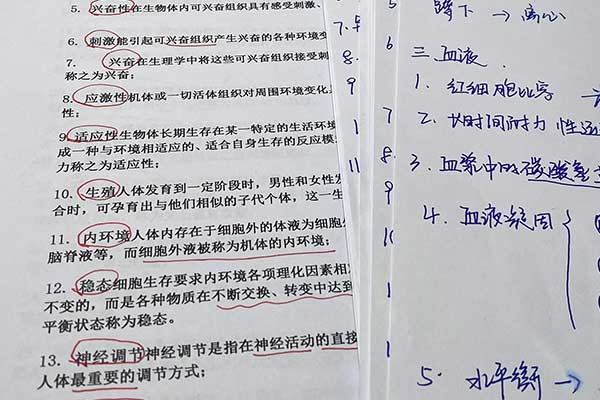 5. 兴奋性在生物体内可兴奋组织具有感受刺激、
6. 刺激能引起可兴奋组织产生兴奋的各种环境变
7. 兴奋在生理学中将这些可兴奋组织接受刺
称之为兴奋；
8. 应激性机体或一切活体组织对周围环境变化
性；
9. 适应性生物体长期生存在某一特定的生活环境
成一种与环境相适应的、适合自身生存的反应模
力称之为适应性；
10. 生殖人体发育到一定阶段时，男性和女性发
合时，可孕育出与他们相似的子代个体，这一生
11. 内环境人体内存在于细胞外的体液为细胞外
脑脊液等，而细胞外液被称为机体的内环境；
12. 稳态细胞生存要求内环境各项理化因素相
不变的，而是各种物质在不断交换、转变中达到
平衡状态称为稳态。
13. 神经调节神经调节是指在神经活动的直接
人体最重要的调节方式；
7.
8.
9
1
11
5
6
7
8.
9
1
1
→ 离心
三.血液
1. 红细胞比容
2. 长时间耐力性运
3. 血浆中的碳酸氢
4. 血液凝固
5. 水平衡 →